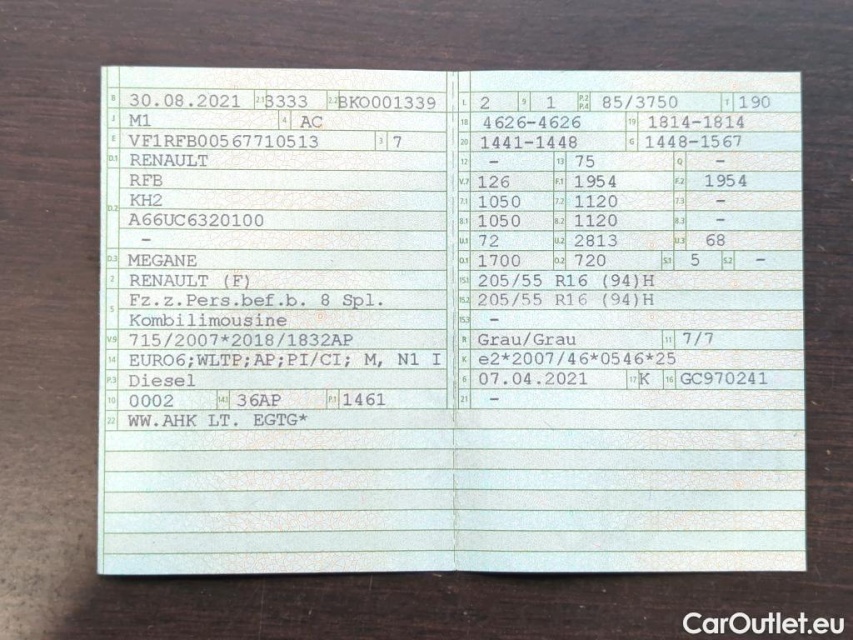 B 30.08.2021 2.1 3333 2.2 BKO001339
J M1 4 AC
E VF1RFB00567710513 3 7
D.1 RENAULT
RFB
D.2 KH2
A66UC6320100
-
D.3 MEGANE
2 RENAULT (F)
5 Fz.z.Pers.bef.b. 8 Spl.
Kombilimousine
V.9 715/2007*2018/1832AP
14 EURO6;WLTP;AP;PI/CI; M, N1 I
P.3 Diesel
10 0002 14.1 36AP P.1 1461
22 WW.AHK LT. EGTG*
L 2 9 1 P.2 P.4 85/3750 T 190
18 4626-4626 19 1814-1814
20 1441-1448 G 1448-1567
12 - 13 75 Q -
V.7 126 F.1 1954 F.2 1954
7.1 1050 7.2 1120 7.3 -
8.1 1050 8.2 1120 8.3 -
U.1 72 U.2 2813 U.3 68
O.1 1700 O.2 720 S.1 5 S.2 -
15.1 205/55 R16 (94)H
15.2 205/55 R16 (94)H
15.3 -
R Grau/Grau 11 7/7
K e2*2007/46*0546*25
6 07.04.2021 17 K 16 GC970241
21 -
CarOutlet.eu